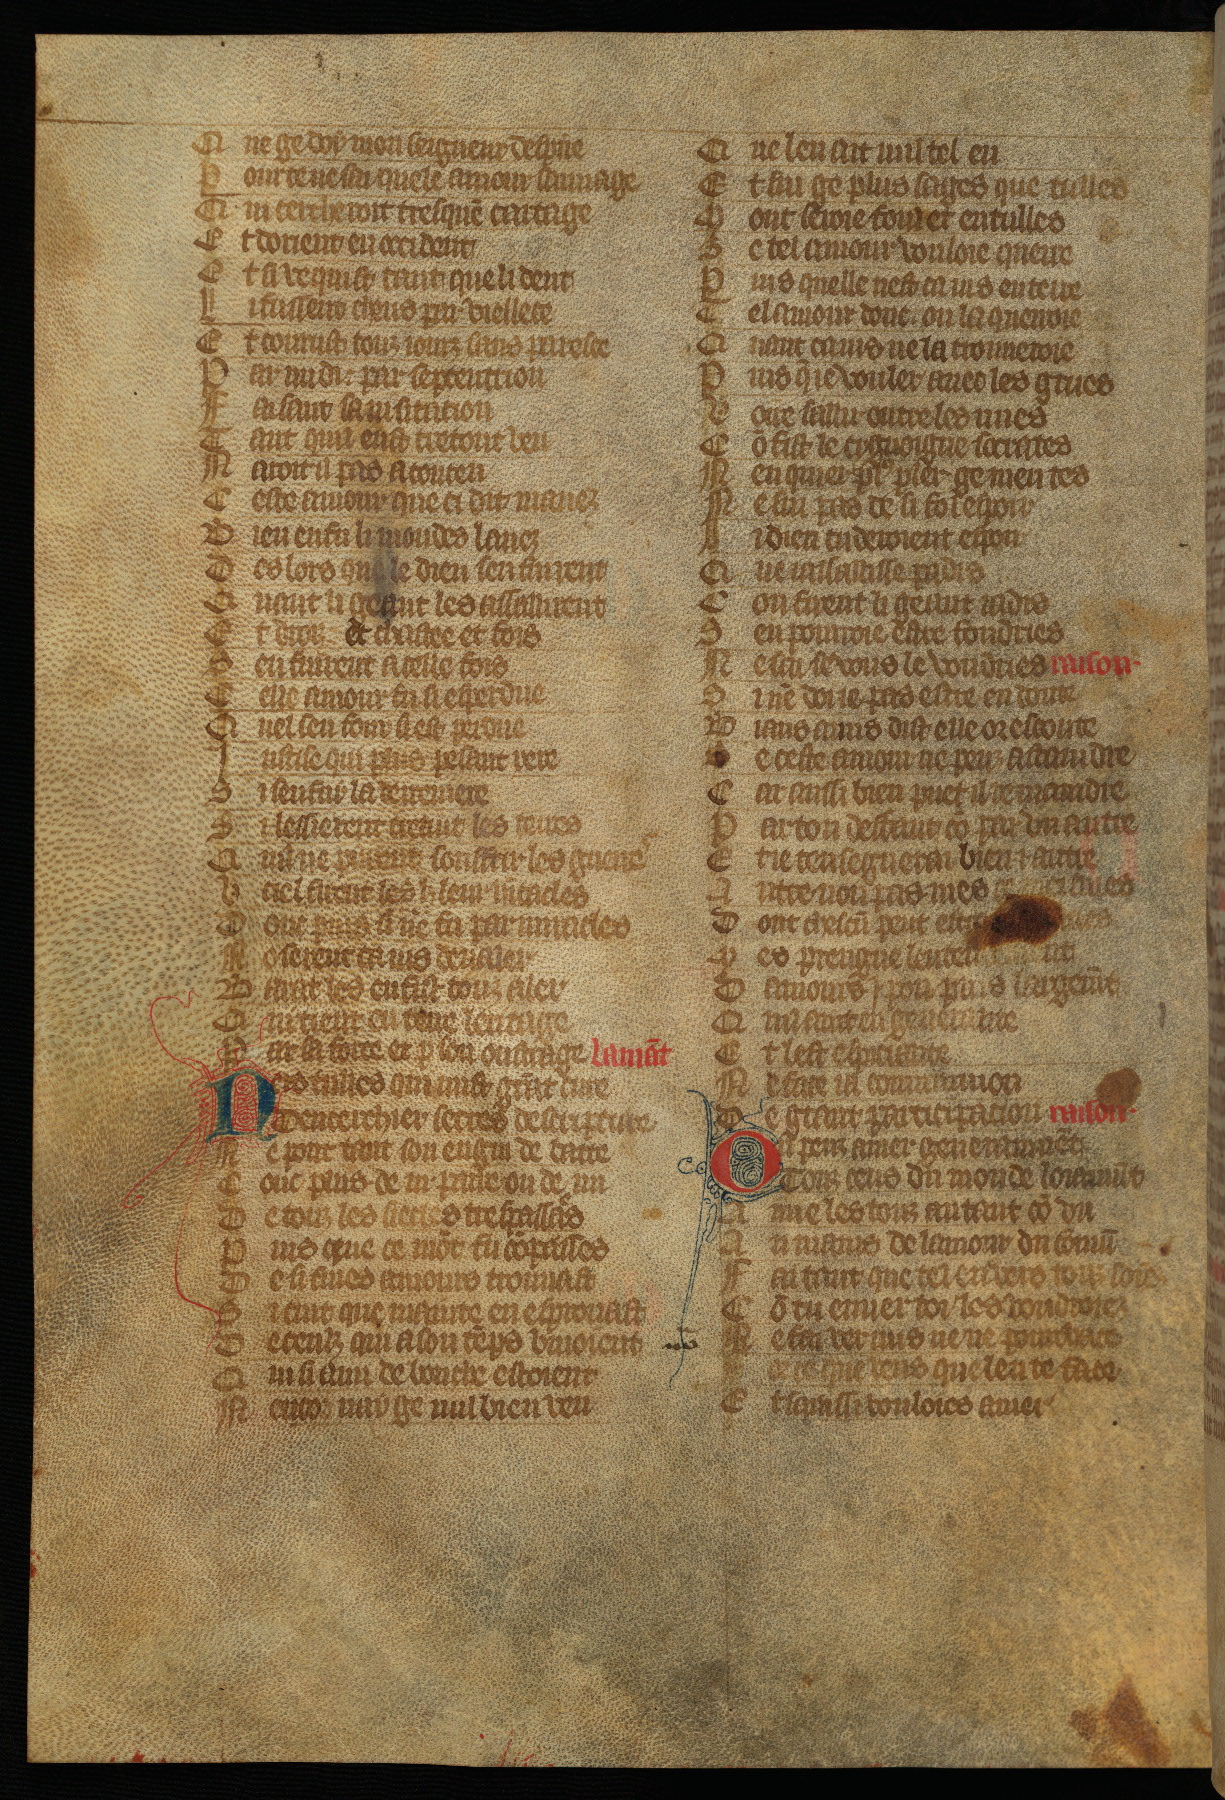 Q ue ge doy mon seigneur despire
P our ce ne sai quele amour sauuage
Q ui cercheroit tresqué cartage
E t dorient en occident
E t si vequist tant que li dent
L i fussent cheus par viellece
E t courust touz iourz sans paresce
P ar midi et par septentrion
F aisant sa uisitation
T ant quil eust tretout veu
N auroit il pas aconseu
C este amour que ci dit mauez
B ien en fu li mondes lauez
D es lors que le dieu sen fuirent
Q uant li geant les assaillirent
E t droiz et chastee et fois
S en fuirent a celle fois
C elle amour fu si esperdue
Q uel sen fouy si est perdue
J ustise qui plus pesant yere
S i sen fui la derreniere
S i lessierent tretuit les terres
Q uil ne porent souffrir les guerres
V ciel furent les h leur intacles
O nc puis si ne fu par miracles
N oserent ca ius deualer
B arat les en fist touz aler
Q ui tient en terre leritage
P ar sa force et p son oultrage lamāt
N eis tulles qui mist grāt cure
D encerchier secres descripture
N e pout tant son engin debatre
C onc plus de iii paire ou de iiii
D e touz les siecles trespassés
P uis que ce mōt fu cōpassés
D e si fines amours trouuast
S i cuit que mainte en esprouast
D e ceulz qui a son tēps viuoient
Q ui si ami de bouche estoient
N encor nay ge nul bien veu
Q ue len ait nul tel eu
E t sui ge plus sages que tulles
B ont seroie fouz et entulles
S e tel amour vouloie querre
P uis quelle nest ca ius en terre
T el amour donc ou la querroie
Q uant ca ius ne la trouueroie
P uis q̄ ie vouler auec les grues
V oire sallir outre les nues
C ō fist le cygnoigne socrates
N en quier pl' pler ge men tes
N e sui pas de si fol espoir
L i dieu cuderoient espoir
Q ue iassallisse padis
C on firent li geant iadis
S en pourroie estre foudries
N e sai se vous le voudries raison
S i nē doi ie pas estre en doute
B iaus amis dist elle or escoute
S e ceste amour ne peuz ataindre
C ar aussi bien puet il remaindre
P ar ton deffaut cō par dun autre
E t ie tenseguerai bien autre
A utre non pas mes
D ont chescū peut estre
M es prengne lenten
D amours j pou plus largemēt
Q uil aint en generalite
E t lest especiaute
N e face ia communion
D e grant participacion raison
T u peuz amer generaumēt
Touz ceus du monde loiaumēt
A ime les touz autant cō vn
A u mains de lamour du cōmū
F ai tant que tel enuers touz soies
C ō tu enuer toy les voudroies
N e fai vers nus ne ne pourchace
F ors ce que veus que len te face
E t saussi vouloies amer